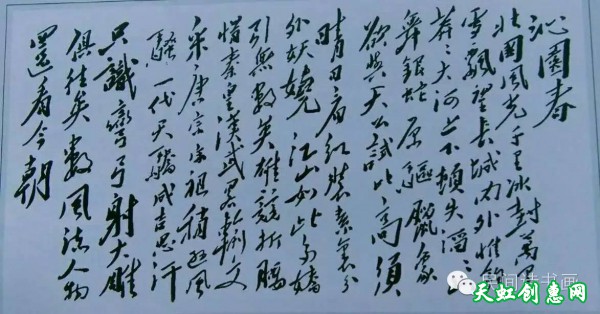 沁園春
北國風光千里冰封萬里
雪飄望長城内外惟餘
莽々大河上下頓失滔々
舞銀蛇原驅臘象
欲與天公試比高須
晴日看紅裝素裹分
外妖嬈江山如此多嬌
引無數英雄競折腰
惜秦皇漢武略輸文
采唐宗宋祖稍遜風
騷一代天驕成吉思汗
只識彎弓射大雕
俱往矣數風流人物
還看今朝
天虹创惠网